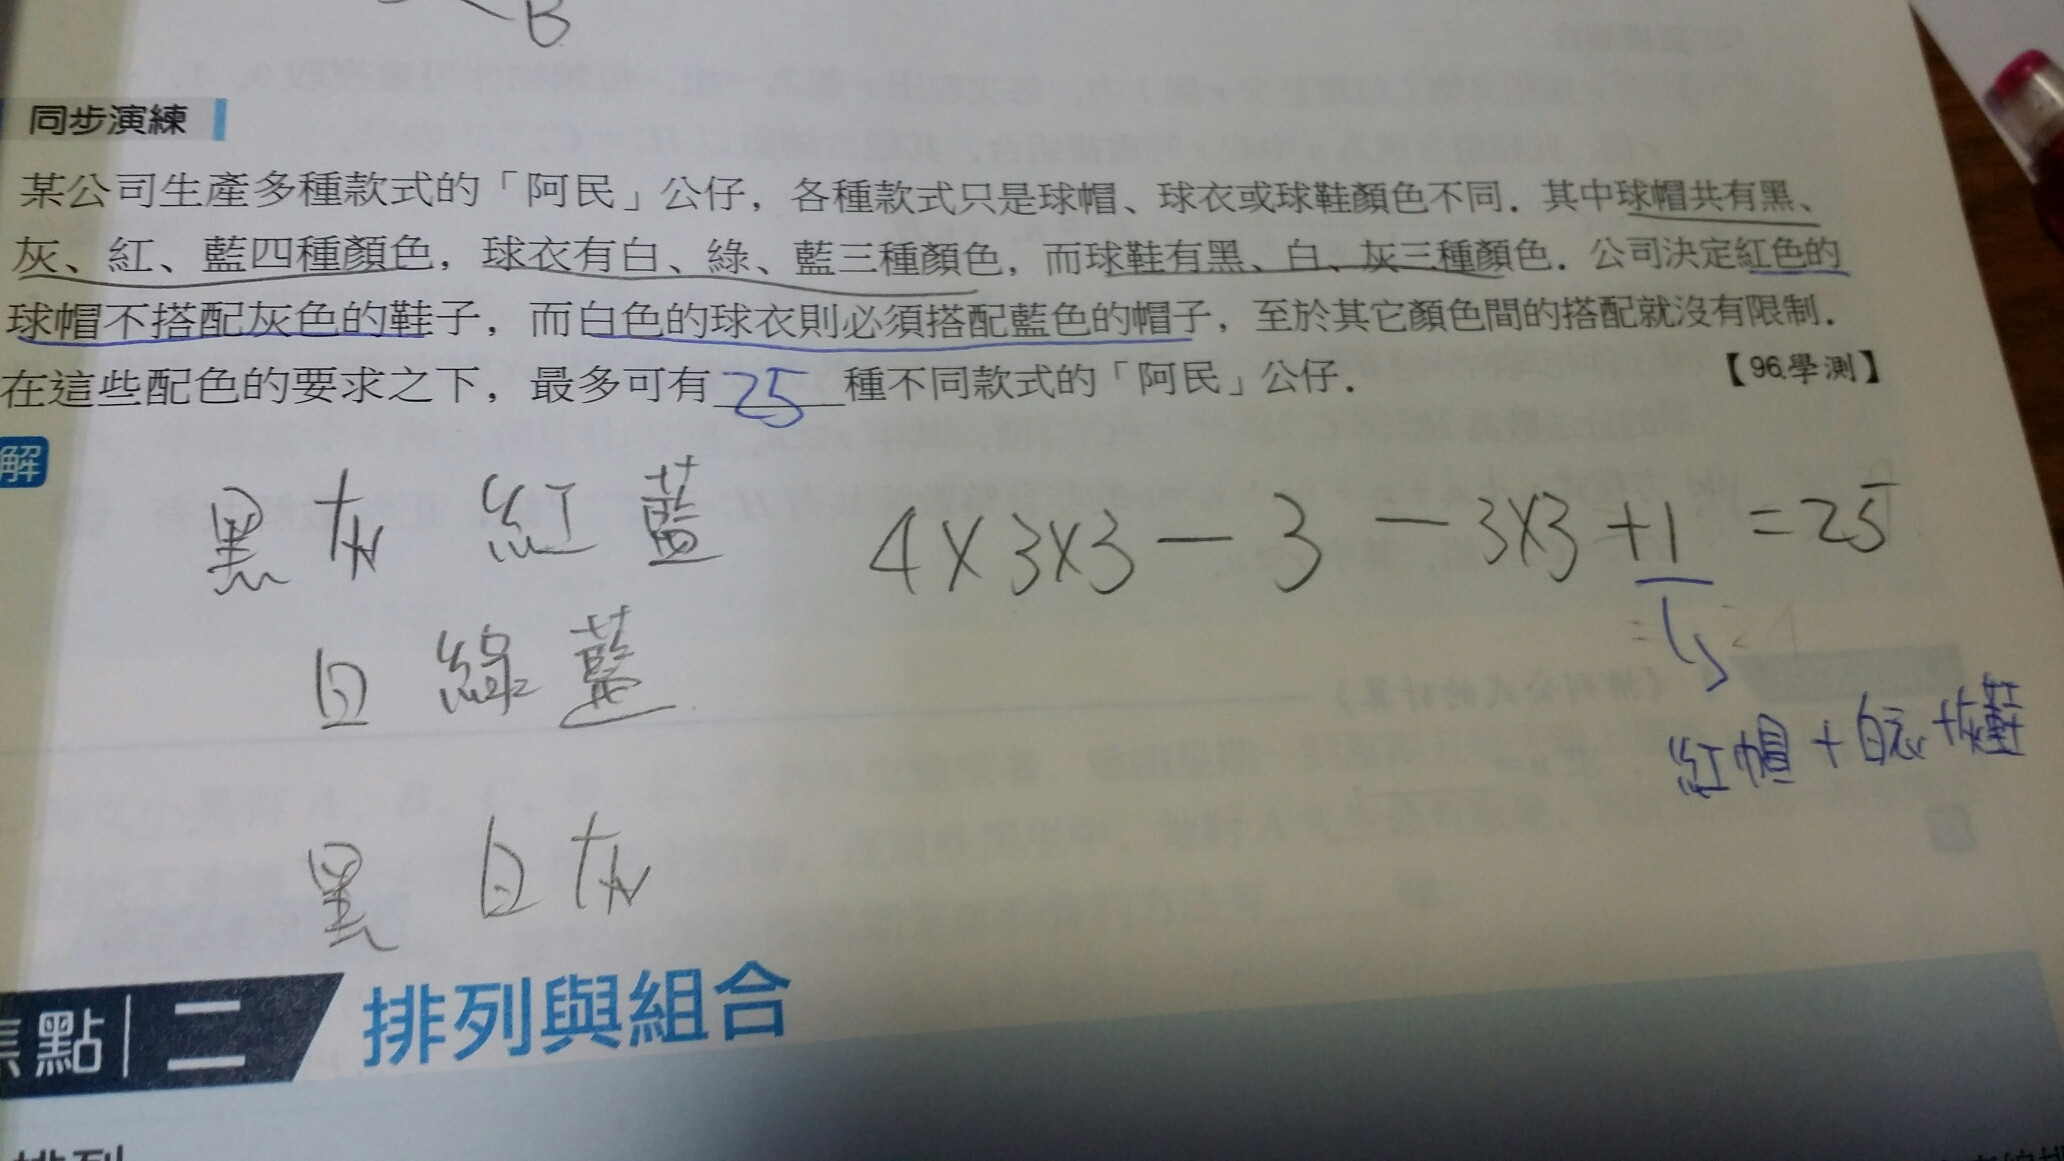 B
同步演練
某公司生產多種款式的「阿民」公仔，各種款式只是球帽、球衣或球鞋顏色不同．其中球帽共有黑、
灰、紅、藍四種顏色，球衣有白、綠、藍三種顏色，而球鞋有黑、白、灰三種顏色．公司決定紅色的
球帽不搭配灰色的鞋子，而白色的球衣則必須搭配藍色的帽子，至於其它顏色間的搭配就沒有限制．
在這些配色的要求之下，最多可有25種不同款式的「阿民」公仔．【96.學測】
解
黑 灰 紅 藍 4×3×3－3－3×3＋1＝25
白 綠 藍
紅帽＋白衣＋灰鞋
黑 白 灰
焦點二 排列與組合
排列